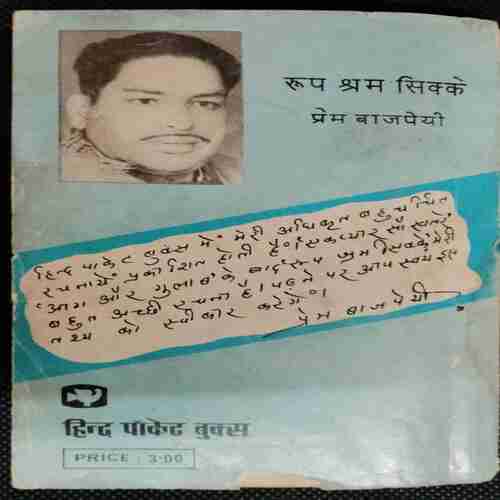 रूप श्रम सिक्के
प्रेम बाजपेयी
हिन्द पाकेट बुक्स में मेरी अधिकृत बहुचर्चित
रचनायें प्रकाशित होती हैं।
आग और गुलाब के बाद रूप श्रम सिक्के मेरी
बहुत अच्छी रचना है। पढ़ने पर आप स्वयं इस
तथ्य को स्वीकार करेंगे।
प्रेम बाजपेयी
हिन्द पॉकेट बुक्स
PRICE : 3·00